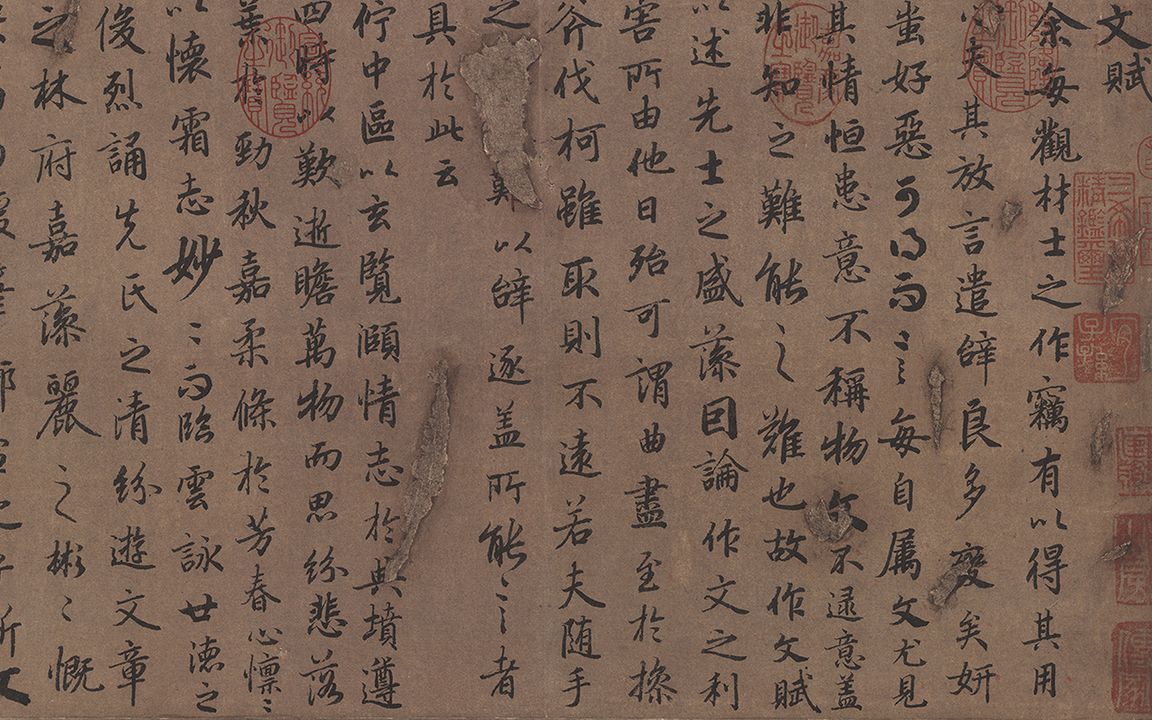 文賦
余每觀材士之作竊有以得其用
心夫其放言遣辭良多變矣妍
蚩好惡可得而言每自属文尤見
其情恒患意不稱物文不逮意盖
非知之難能之難也故作文賦
以述先士之盛藻因論作文之利
害所由他日殆可謂曲盡至於操
斧伐柯雖取則不遠若夫随手
之難以辭逐盖所能言者
具於此云
佇中區以玄覽頤情志於典墳遵
四時以歎逝瞻萬物而思紛悲落
葉於勁秋嘉柔條於芳春心懍〻
以懷霜志妙〻而臨雲詠世德之
俊烈誦先民之清紛遊文章
之林府嘉藻麗之彬〻慨